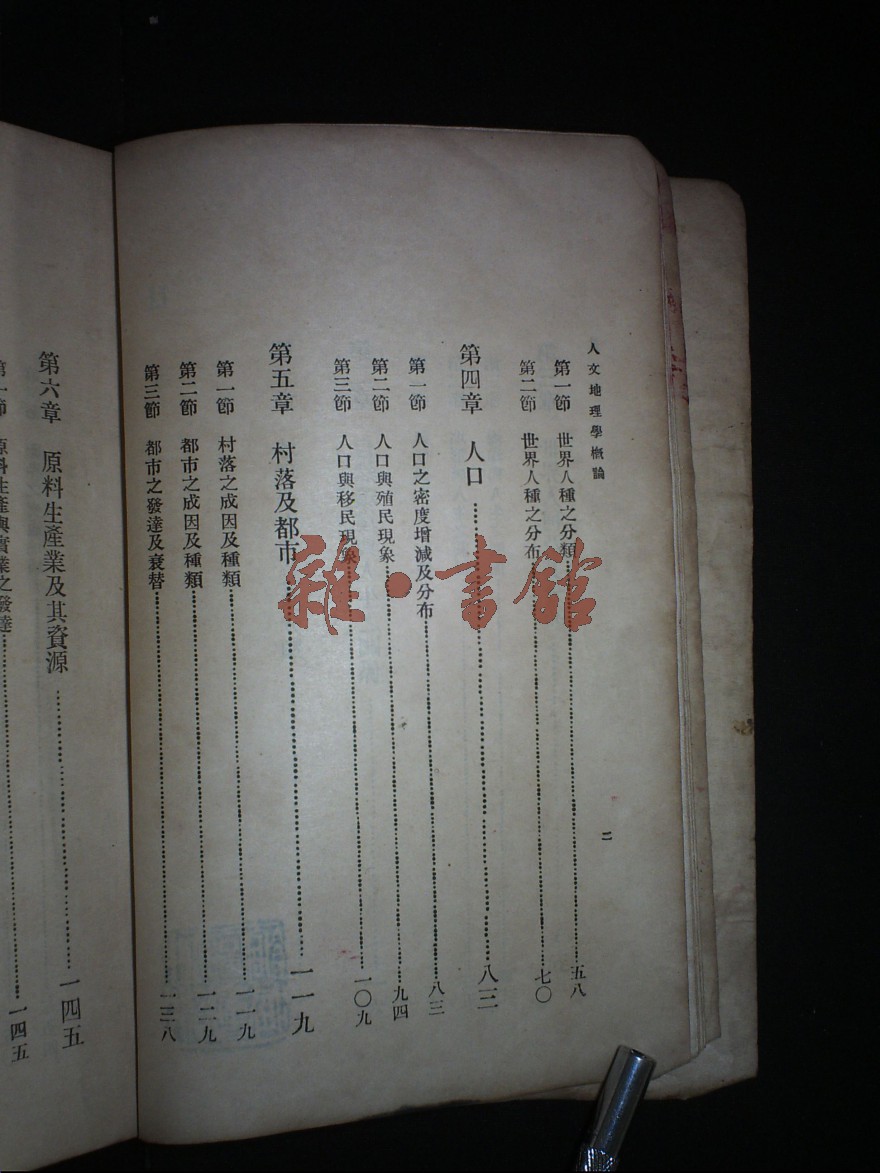 人文地理學概論
二
第一節 世界人種之分類……五八
第二節 世界人種之分布……七〇
第四章 人口……八三
第一節 人口之密度增減及分布……八三
第二節 人口與殖民現象……九四
第三節 人口與移民現象……一〇九
第五章 村落及都市……一一九
第一節 村落之成因及種類……一一九
第二節 都市之成因及種類……一二九
第三節 都市之發達及衰替……一三八
第六章 原料生產業及其資源……一四五
第一節 原料生產與實業之發達……一四五
雜·書館